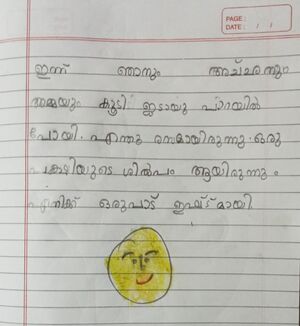 PAGE :
DATE : / /
ഇന്ന് ഞാനും അച്ഛനും
അമ്മയും കൂടി ജഡായു പാറയിൽ
പോയി. എന്തു രസമായിരുന്നു. ഒരു
പക്ഷിയുടെ ശിൽപം ആയിരുന്നു.
എനിക്ക് ഒരുപാട് ഇഷ്ടമായി.